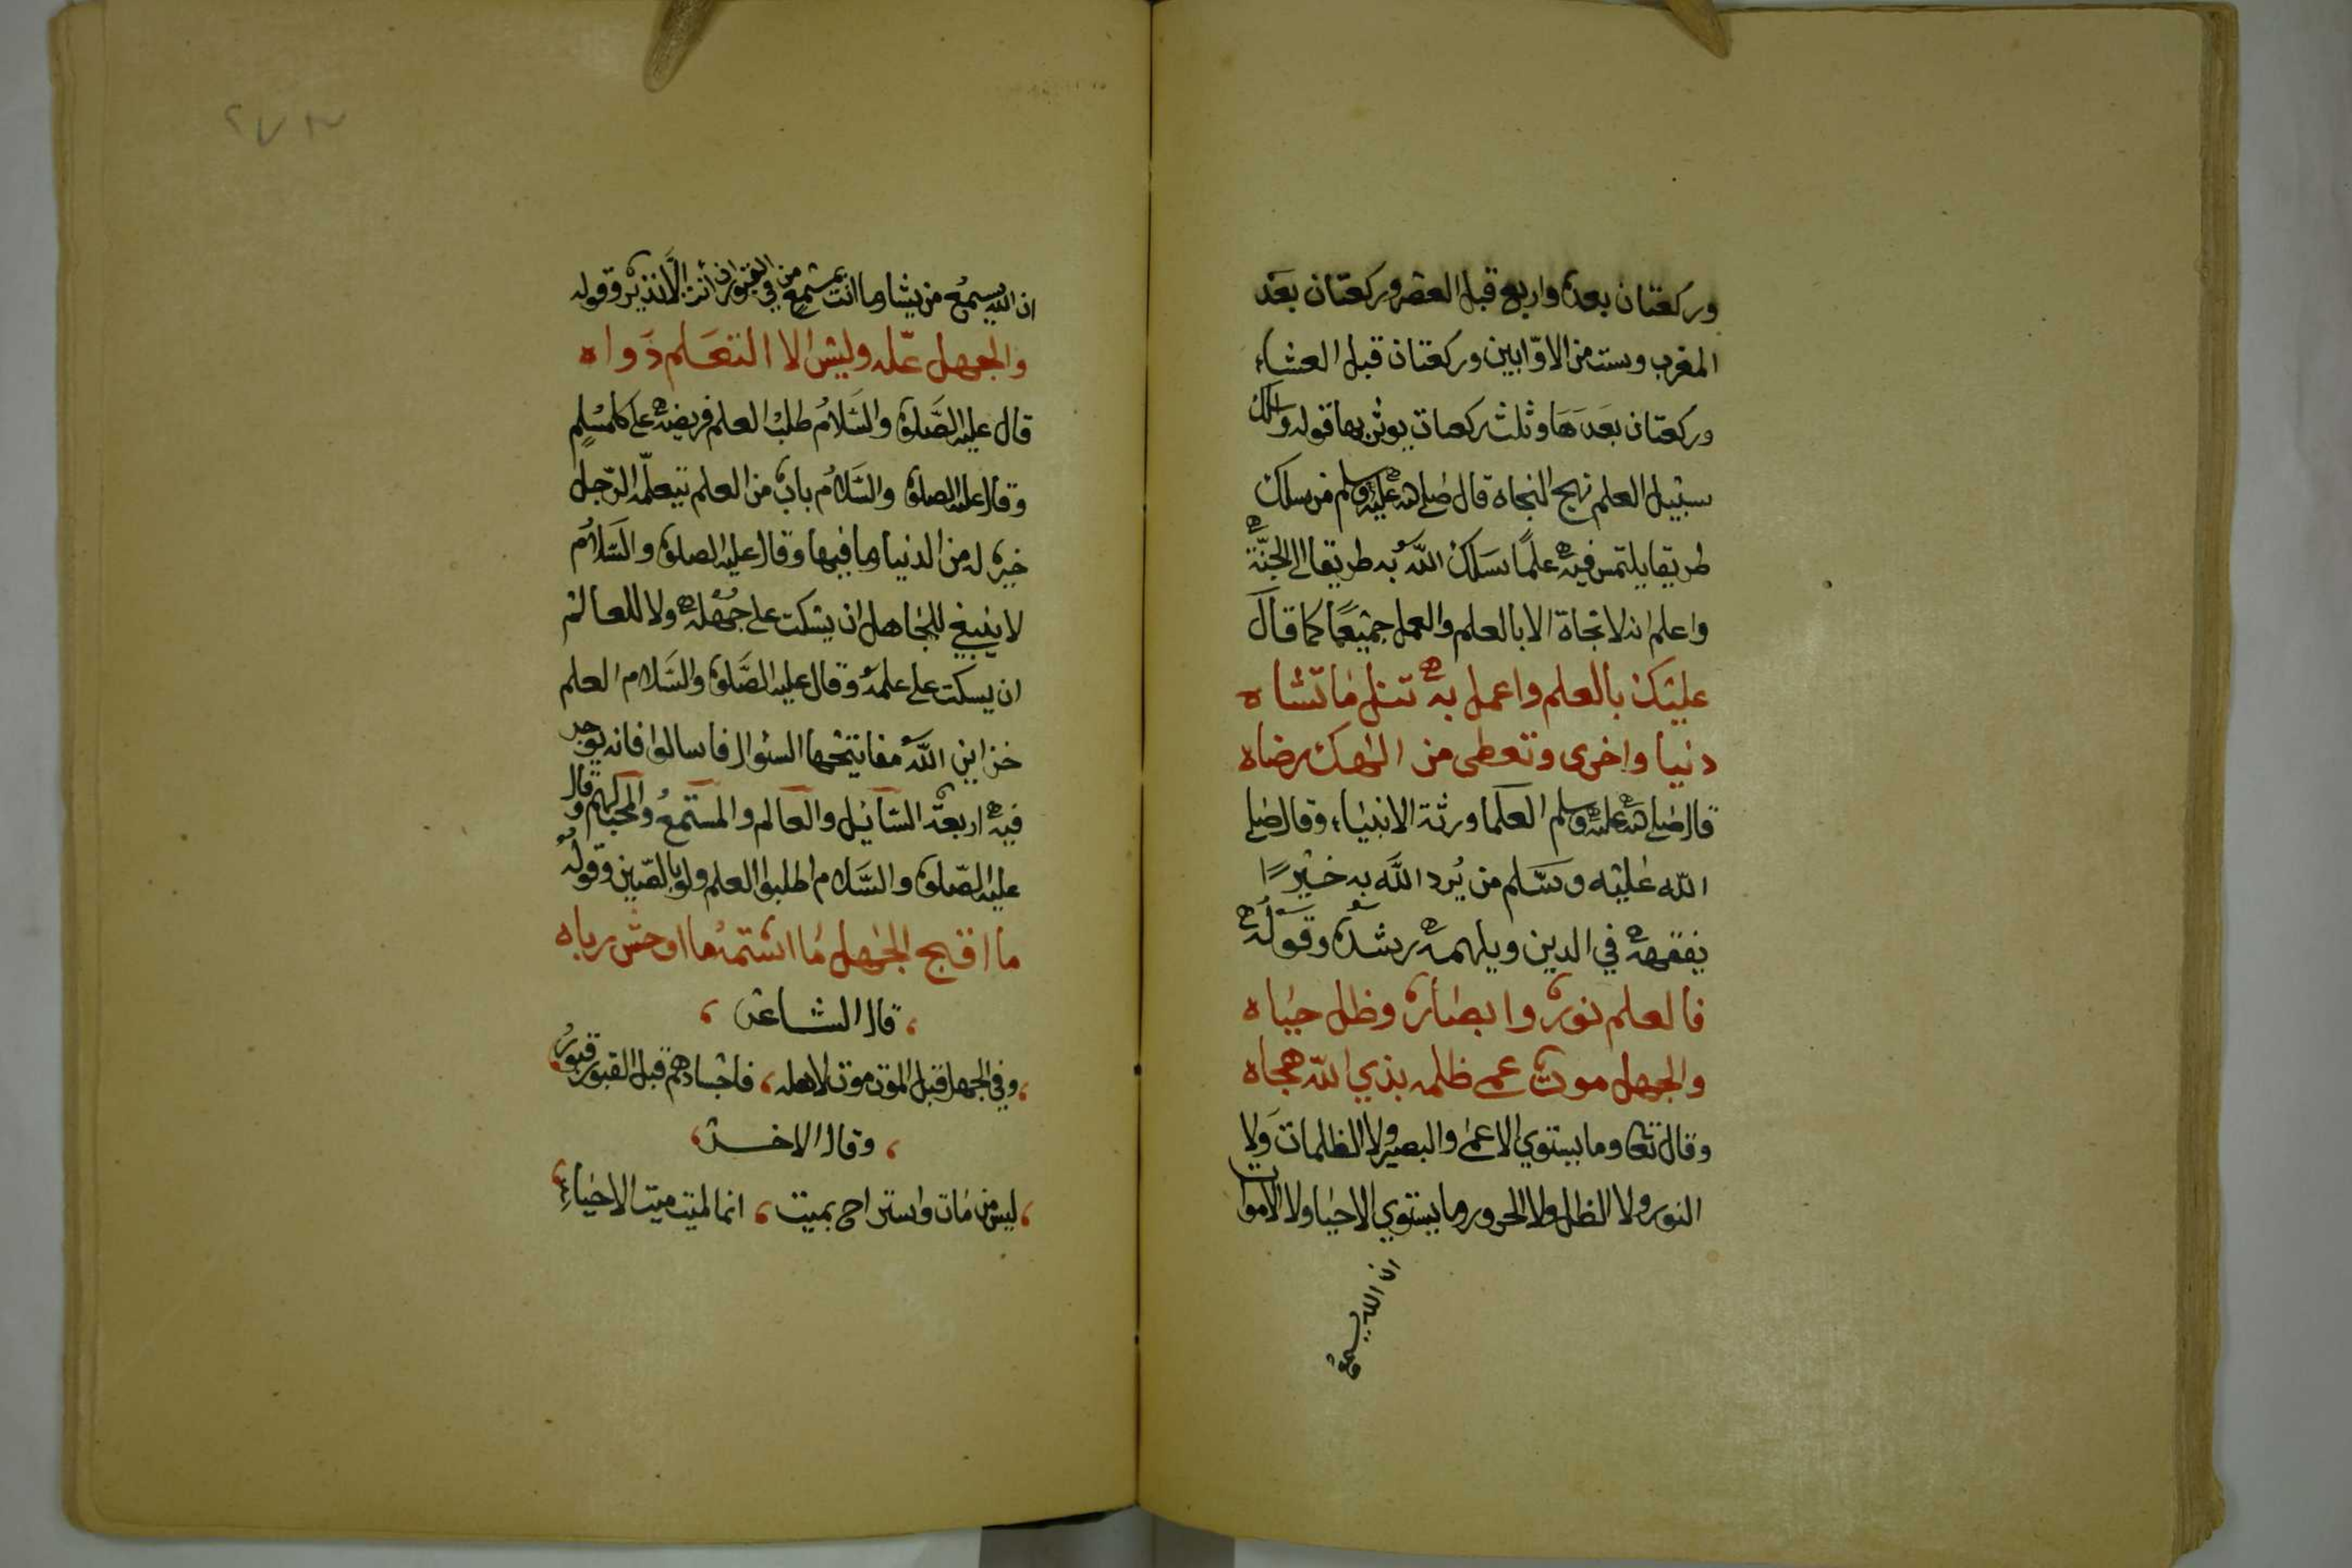 وركعتان بعده واربع قبل العصر وركعتان بعد
المغرب وست من الاوّابين وركعتان قبل العشاء
وركعتان بعدها وثلث ركعات يوتر بها قوله واسلك
سبيل العلم نهج النجاه قال صلى الله عليه وسلم من سلك
طريقا يلتمس فيه علمًا سلك اللّه به طريقا الى الجنّة
واعلم انه لا نجاة الا بالعلم والعمل جميعًا كما قال
عليك بالعلم واعمل به تنل ما تشاه
دنيا واخرى وتعطى من الهك رضاه
قال صلى الله عليه وسلم العلما ورثة الانبياء وقال صلى
اللّه عليه وسلم من يُرد اللّه به خيرًا
يفقهه في الدين ويلهمه رشده وقوله
فالعلم نور وابصار وظل حياه
والجهل موت عمى ظلمه بذي اللّه هجاه
وقال تعا وما يستوي الاعمى والبصير ولا الظلمات ولا
النور ولا الظل ولا الحرور وما يستوي الاحيا ولا الاموات
ان الله يسمع
٢٧٣
ان اللّه يسمع من يشا وما انت بمسمع من في القبور ان أنت الّا نذير وقوله
والجهل علّه وليس الا التعلم دواه
قال عليه الصّلوة والسّلامُ طلب العلم فريضه على كل مسْلِم
وقال عليه الصلوة والسّلامُ باب من العلم يتعلّمه الرّجل
خير له من الدنيا وما فيها وقال عليه الصلوة والسّلامُ
لا ينبغي للجاهل ان يسكت على جهله ولا للعالم
ان يسكت على علمه وقال عليه الصّلوة والسّلام العلم
خزاين اللّه مفاتيحها السئوال فاسالوا فانه يوجر
فيه اربعة السّائل والعالم والمستمعُ والمحب لهم وقال
عليه الصّلوة والسّلام اطلبوا العلم ولو بالصّين وقوله
ما اقبح الجهل ما اشتمه ما اوحش رباه
قال الشاعر
وفي الجهل قبل الموت موت لاهله، فاجسادهم قبل القبور قبورُ
وقال الاخر
ليس من مات واستراح بميت، انما الميت ميت الاحياءِ